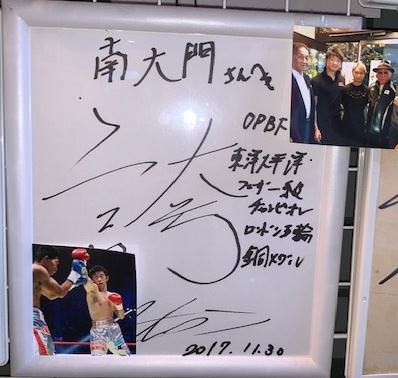 南大門さんへ
OPBF
東洋太平洋
フェザー級
チャンピオン
ロンドン五輪
銅メダル
2017.11.30